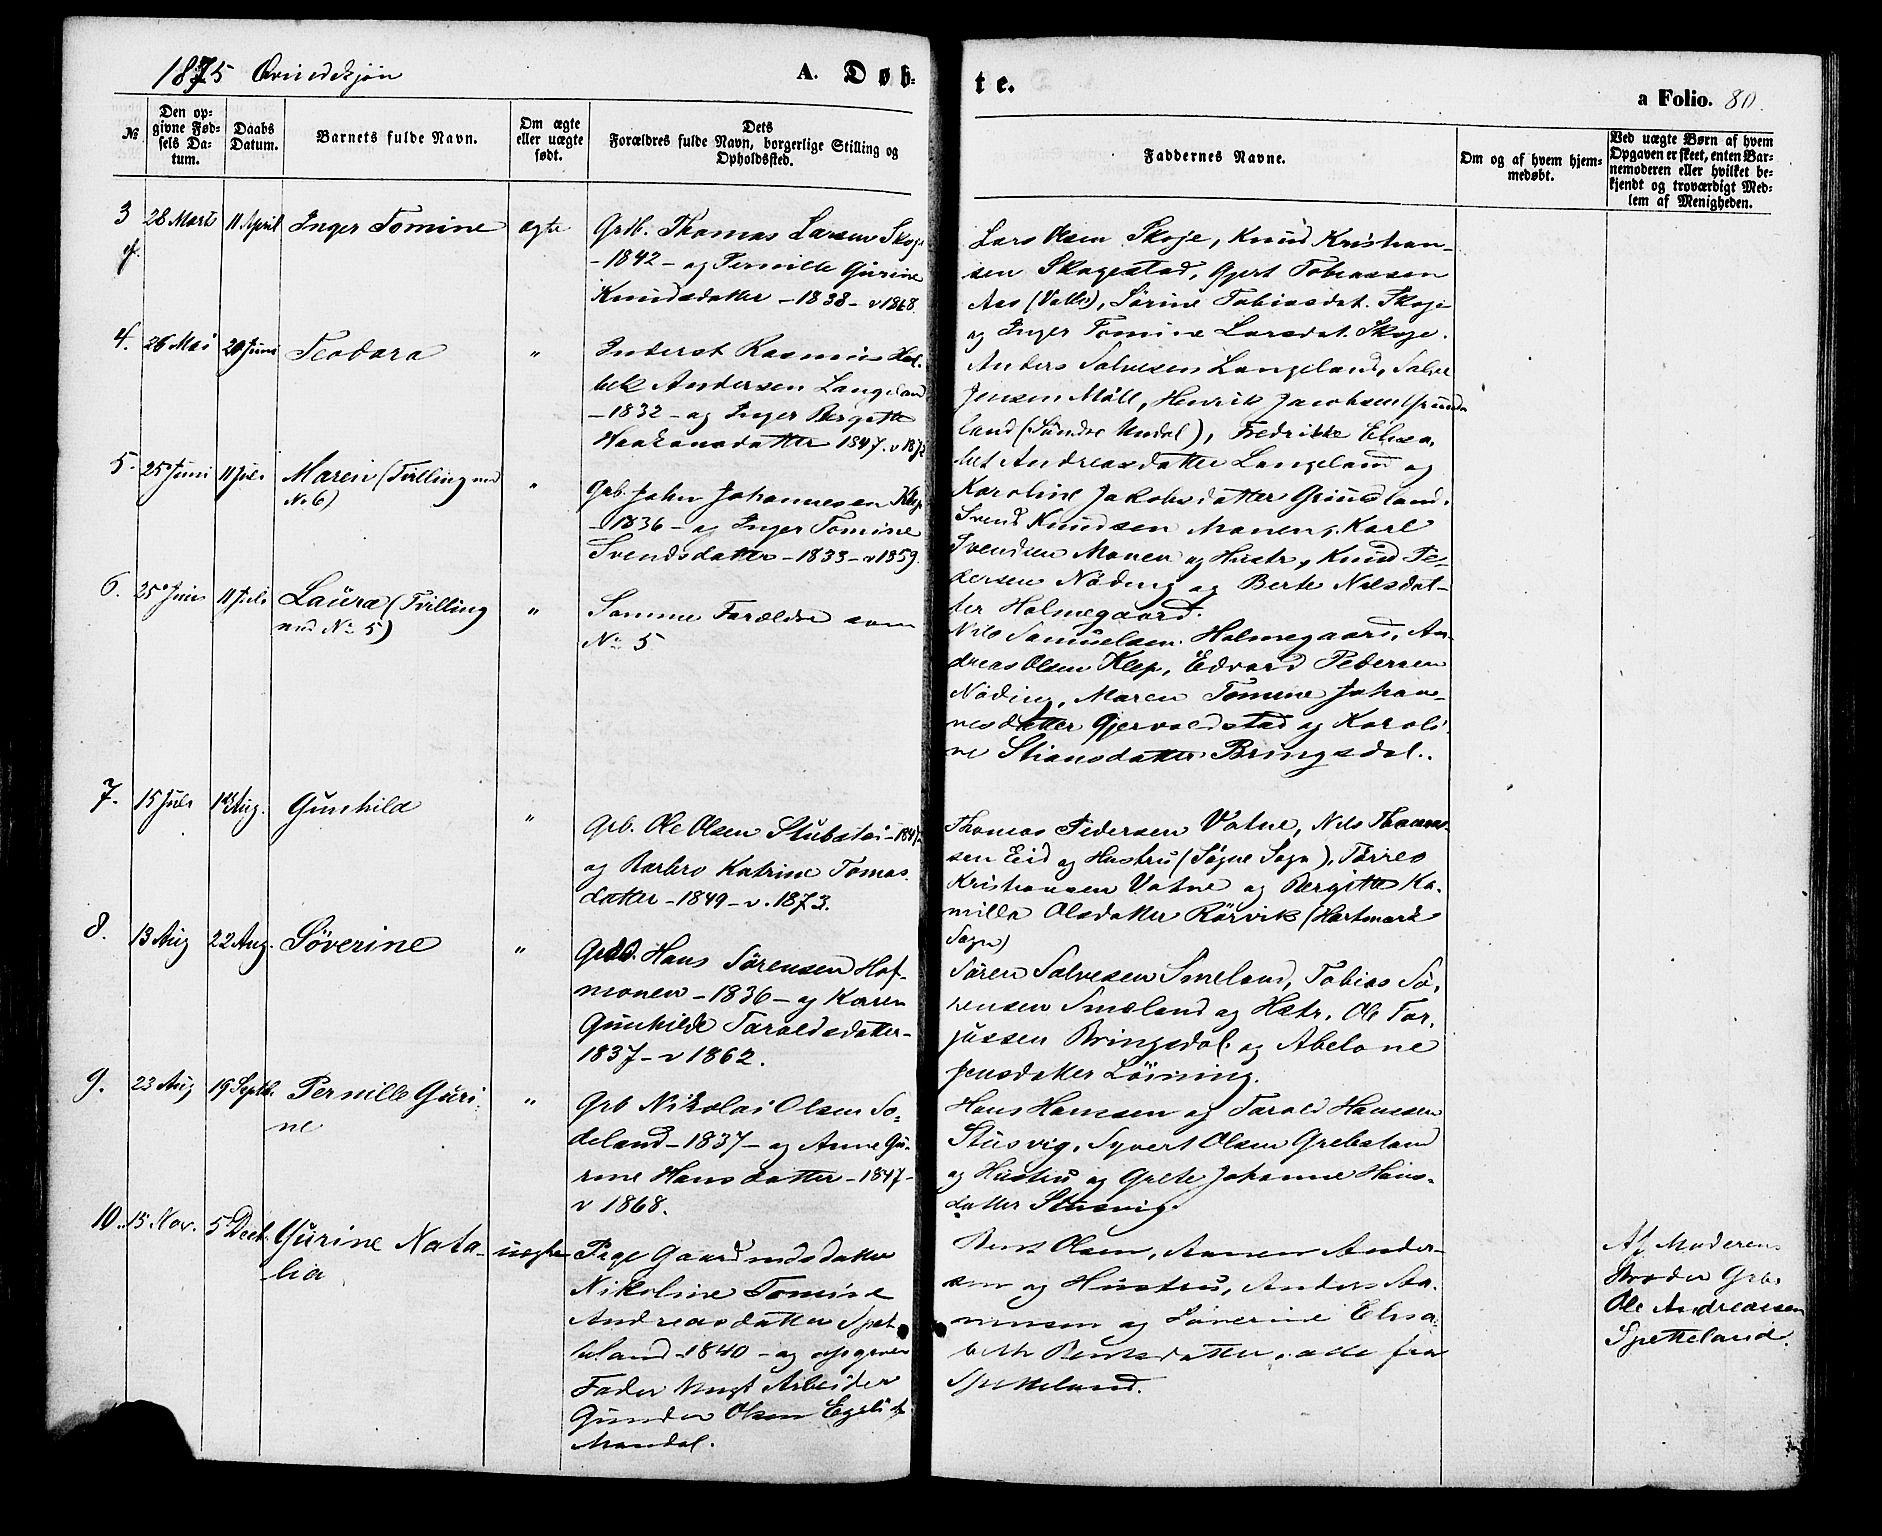 1875 Qvindekjøn
A. Døb-
te.
a Folio. 80.
№
Den op-
givne Fød-
sels Da-
tum.
Daabs
Datum.
Barnets fulde Navn.
Om ægte
eller uægte
født.
Dets
Forældres fulde Navn, borgerlige Stilling og
Opholdssted.
Faddernes Navne.
Om og af hvem hjem-
medøbt.
Ved uægte Børn af hvem
Opgaven er skeet, enten Bar-
nemoderen eller hvilket be-
kjendt og troværdigt Med-
lem af Menigheden.
3
28 Marts
11 April
Inger Tomine
ægte
Grdb. Thomas Larsen Skoje
-1842- og Pernille Gurine
Knudsdatter -1838- v 1868.
Lars Olsen Skoje, Knud Kristian-
sen Skagestad, Gjert Tobiassen
Aas (Valle), Sørine Tobiasdat. Skoje
og Inger Tomine Larsdat. Skoje.
4.
26 Mai
20 Juni
Teodora
"
Inderst Rasmus Hol-
bek Andersen Langeland
-1832- og Inger Bergitte
Haakonsdatter 1847. v 187
Anders Salvesen Langeland, Salve
Jensen Møll, Henrik Jacobsen Grunde
land (Søndre Undal), Fredrikke Elisa-
bet Andreasdatter Langeland og
Karoline Jakobsdatter Grundland.
5.
25 Juni
11 Juli
Maren (Tvilling med
№ 6)
"
Grb. John Johannesen Klep
-1836- og Inger Tomine
Svendsdatter -1833- v 1859.
Svend Knudsen Monen, Karl
Svendsen Monen og Hustr, Knud Pe-
dersen Nøding og Berte Nilsdat-
ter Holmegaard.
6.
25 Juni
11 Juli
Laura (Tvilling
med № 5)
"
Samme Forældre som
№ 5
Nils Samuelsen Holmegaard, An-
dreas Olsen Klep, Edvard Pedersen
Nøding, Maren Tomine Johan-
nesdatter Gjervoldstad og Karoli-
ne Stiansdatter Bringsdal.
7.
15 Juli
1ste Aug.
Gunhild
"
Grb. Ole Olsen Stubstøi -1847-
og Barbro Katrine Tomas
datter -1849- v. 1873.
Thomas Pedersen Vatne, Nils Thom-
sen Eid og Hustru (Søgne Sogn), Tørres
Kristiansen Vatne og Bergitte Ka-
milla Olsdatter Rørvik (Hartmark
Sogn)
8.
13 Aug
22 Aug.
Søverine
"
Grdb. Hans Sørensen Hof-
monen -1836- og Karen
Gunhilde Taroldsdatter-
1837- v 1862.
Søren Salvesen Smeland, Tobias Sø-
rensen Smeland og Hstr. Ole Tor-
jussen Bringsdal og Abelone
Jensdatter Løining.
9.
23 Aug
19 Septb.
Pernille Guri-
ne
"
Grb Nikolai Olsen So-
deland -1837- og Anne Gu-
rine Hansdatter -1847-
v 1868.
Hans Hansen og Tarald Hansen
Stusvig, Syvert Olsen Grebsland
og Hustru og Grete Johanne Hans-
datter Stusvig.
10.
15 Nov.
5 Decb.
Gurine Nata-
lia
uægte
Pige Gaardmdsdatter
Nikoline Tomine
Andreasdatter Spet-
teland -1840- og opgiven
Fader Ungk Arbeider
Gunder Olsen Egeli af
Mandal.
Bent Olsen, Aanen Ander-
sen og Hustru, Anders Aa-
nensen og Søverine Elisa-
beth Bentsdatter, alle fra
Spetteland.
Af Moderens
Broder Grb.
Ole Andreassen
Spetteland.